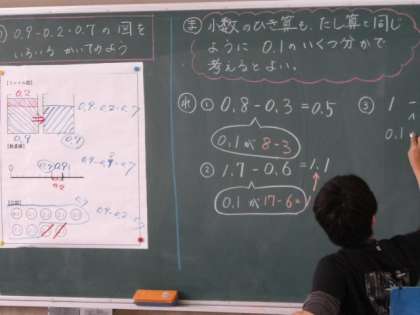 0.9-0.2=0.7の図を
いろいろかいてみよう
0.2
0.9
0.9-0.2=0.7
0
0.9
0.2
ま 小数のひき算も、たし算と同じ
ように 0.1のいくつ分かで
考えるとよい。
れ ① 0.8-0.3=0.5
0.1が 8-3
② 1.7-0.6=1.1
0.1が 17-6=
③ 1-
0.1